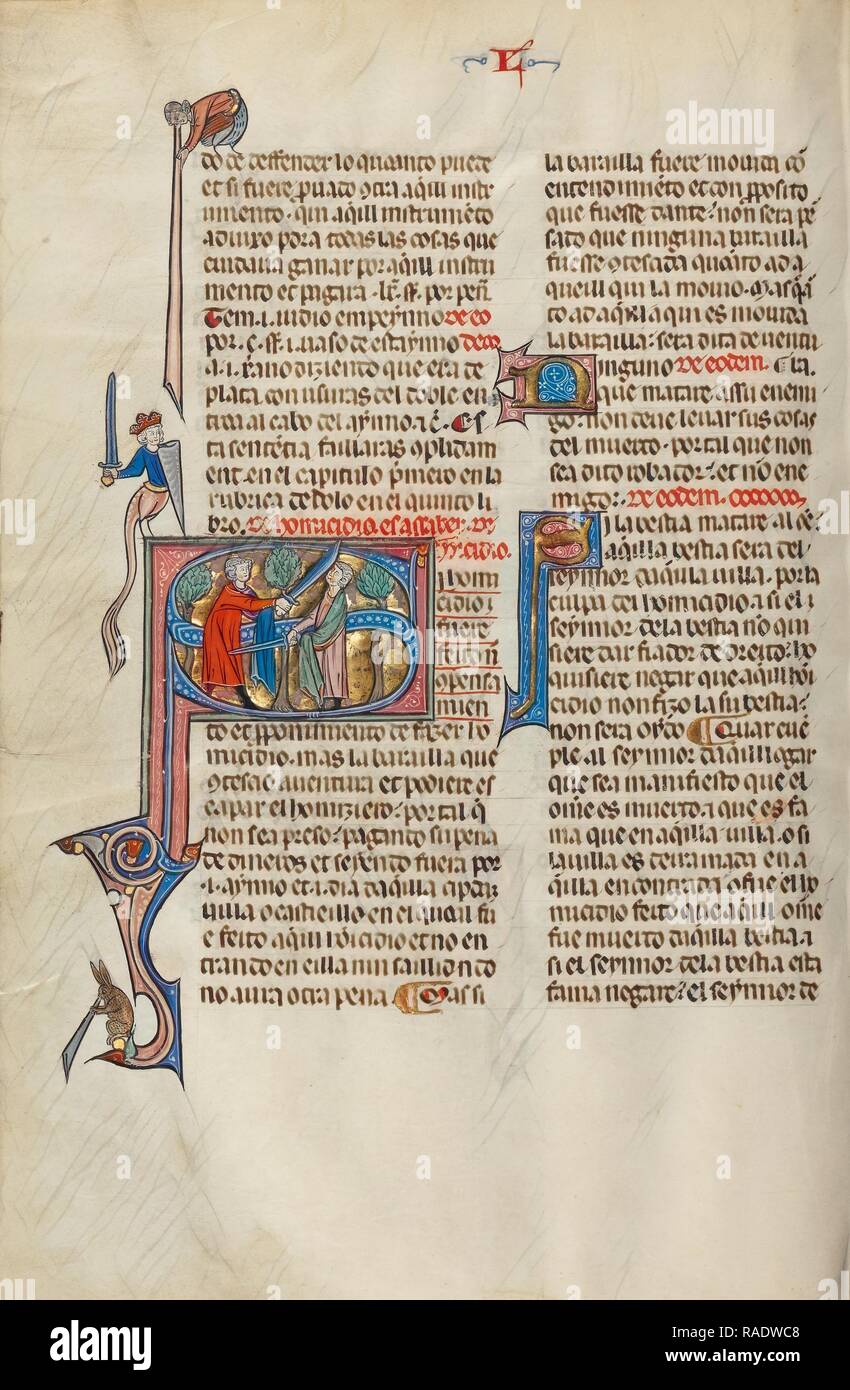 L
do de deffender lo quanto puede
et si fuere puado ɔtra aq̃ill instr
umento · qui aq̃ill instrumẽto
aduxo pora todas las cosas que
cuidaua ganar por aq̃ill instru
mento et pagara ·
Item .i. iudio empeynno de eo
por .i. uaso de estaynno dem
.i. xp̃ano diziendo que era de
plata con usuras del doble en
troa al cabo del aynno ¶ Es
ta sentẽcia faillaras ɔplidam
ent en el capitulo p̃mero en la
rubrica de dolo en el quinto li
bro. de homicidio. es a saber. de
omicidio.
Si homi
cidio
fuere
feito
ɔpensa
mien
to et ꝓponimiento de fazer ho
micidio · mas la barailla que
ɔtesae auentura et podiere es
capar el homiziero · por tal q̃
non sea preso · pagando su pena
de dineros et seyendo fuera por
.i. aynno et .i. dia daq̃illa cipdat
uilla o castieillo en el quoal fu
e feito aq̃ill hoicidio et no en
trando en eilla nin sailliondo
no aura otra pena ¶ Mas si
la barailla fuere mouida cõ
entendimiẽto et con ꝓposito
que fuesse dante · non sera pẽ
sado que ninguna barailla
fuesse ɔtesada quãto ad a
queill qui la mouio · Mas q̃ãto
ad aq̃el a qui es mouida
la barailla · sera dita de uentu
Ninguno de eodem. ra.
que matare a su enemi
go · non deue leuar sus cosas
del muerto · por tal que non
sea dito robador · et nõ ene
migo · de eodem.
Si la bestia matare al õe ·
aq̃illa bestia sera del
seynnor daq̃illa uilla · por la
culpa del homicidio · a si el
seynnor de la bestia nõ qui
siere dar fiador de dreito · ho
quisiere negar que aq̃ill hoi
cidio non fizo la su bestia ·
non sera oydo ¶ Quar cue
ple al seynnor daq̃ill logar
que sea manifiesto que el
om̃e es muerto · a que es fa
ma que en aq̃illa uilla · o si
la uilla es derramada en a
q̃illa encontrada o fue el ho
micidio feito que aq̃ill om̃e
fue muerto daq̃illa bestia · a
si el seynnor de la bestia esta
fama negare · el seynnor de
alamy
a
Image ID: RADWC8
www.alamy.com